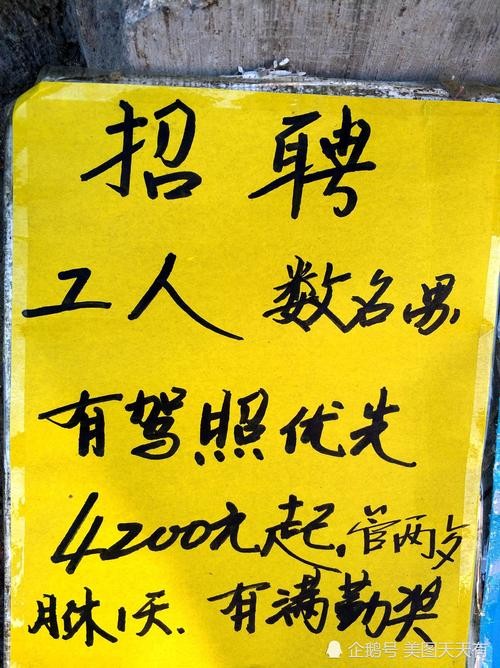 招聘
工人 数名男.
有驾照优先
4200元起,管两
月休1天. 有满勤奖
企鹅号 美图天天有